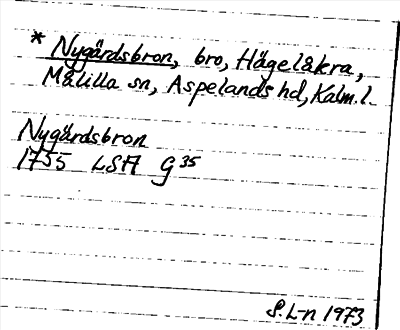 * Nygårdsbron, bro, Hägelåkra,
Målilla sn, Aspelands hd, Kalm.l.
Nygårdsbron
1755 LSA G 35
S.L-n 1973